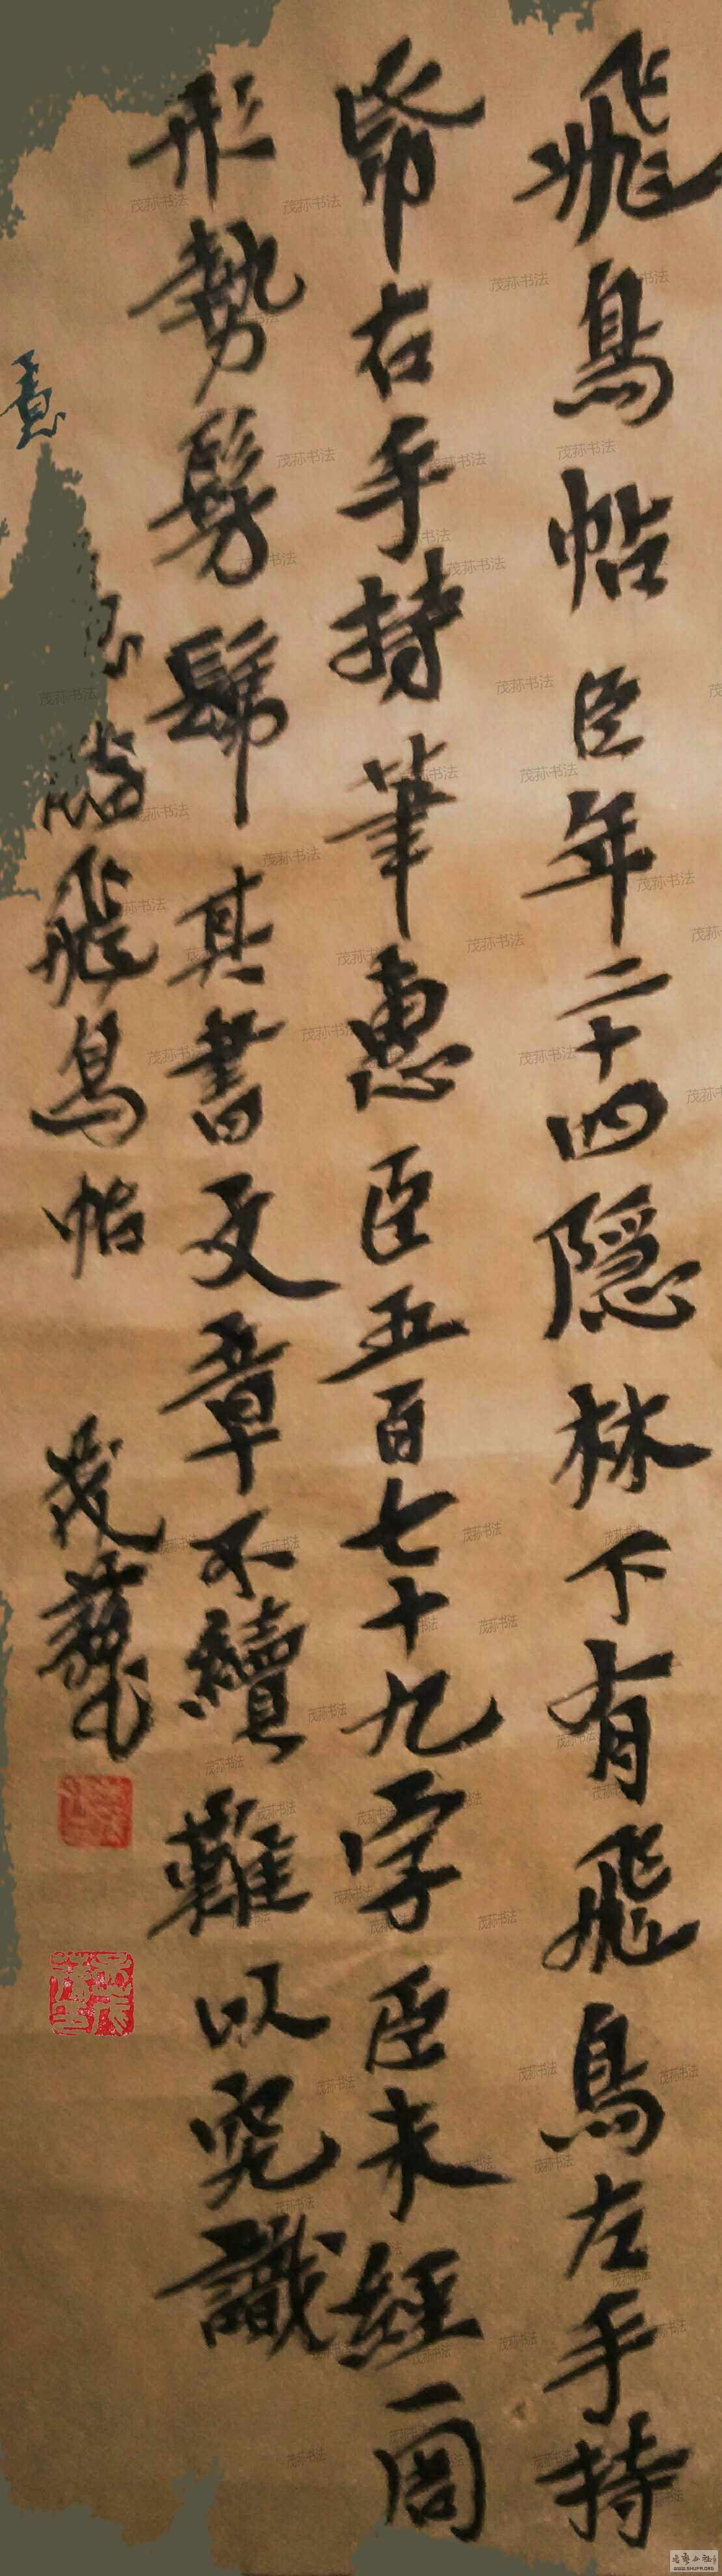 飛鳥帖臣年二十四隱林下有飛鳥左手持
帋右手持筆惠臣五百七十九字臣未經一周
形勢髣髴其書文章不續難以究識
意
臨飛鳥帖
茂荪书法